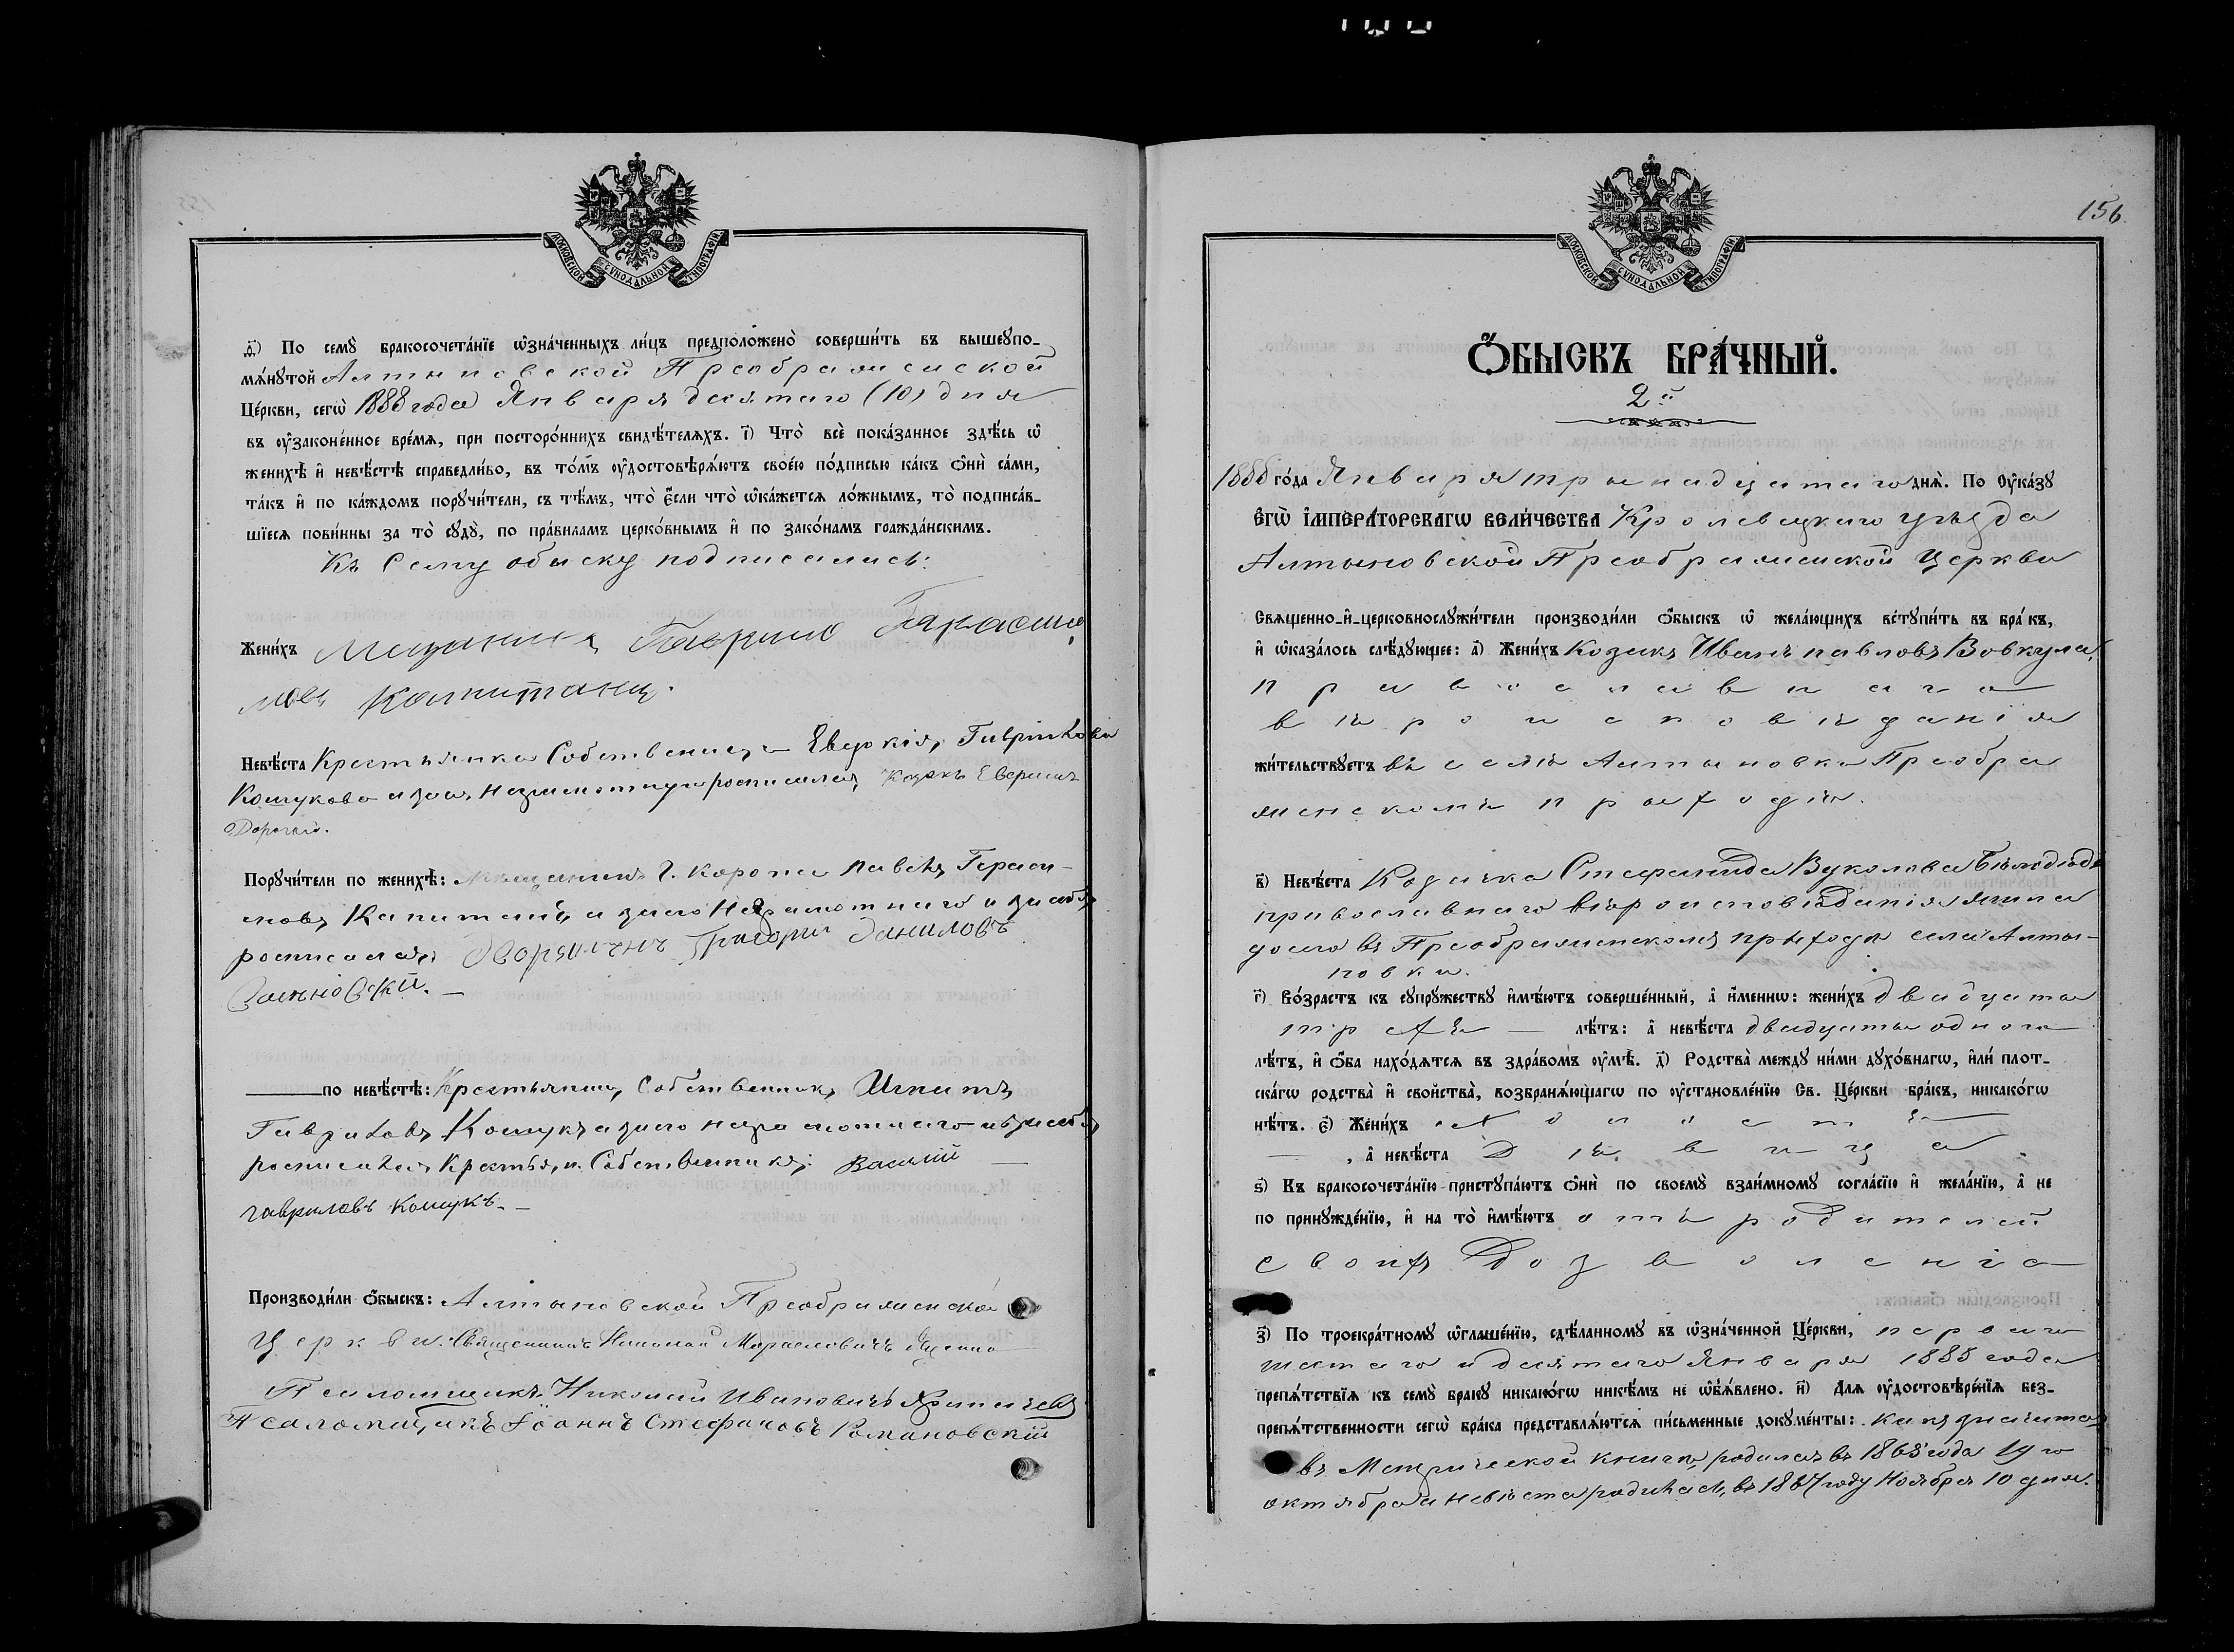 МОСКОВСКОЙ СУНОДАЛЬНОЙ ТИПОГРАФІИ
д҃і) По семꙋ̀ бракосочета́нїе ѡ҆зна́ченныхъ ли́цъ предположено̀ соверши́ть въ вышеꙋпо-
мѧ́нꙋтой Алтыновской Преображенской
Це́ркви, сегѡ̀ 1888 года Января десятаго (10) дня
въ оу҆законе́нное вре́мѧ, при посторо́ннихъ свидѣ́телѧхъ. і҃) Что̀ всѐ пока́занное здѣ́сь ѡ҆
женихѣ̀ и҆ невѣ́стѣ справедли́во, въ то́мъ оу҆достовѣрѧ́ютъ свое́ю по́дписью ка́къ ѻ҆нѝ са́ми,
та́къ и҆ по ка́ждомъ порꙋчи́тели, съ тѣ́мъ, что̀ є҆́сли что̀ ѡ҆ка́жетсѧ ло́жнымъ, то̀ подписа́в-
шїесѧ пови́нны за то̀ сꙋдꙋ̀, по пра́виламъ церко́внымъ и҆ по зако́намъ гражда́нскимъ.
Къ Сему обыску подписались:
Жени́хъ Мещанинъ Гаврило Гарасимо
мовъ Капитанец.
Невѣ́ста Крестьянка Собственица Евдокія, Гаврилова
Кошукова а за ея неграмотную росписался, Козакъ
Порꙋчи́тели по женихѣ̀: Мещанинъ г. Коропа Павелъ Гераси-
мовъ Капитанец а за его неграмотнаго и за себя
росписался Дворянинъ Григорій Даниловъ
по невѣ́стѣ: Крестьянин, Собственникъ Игнатъ
Гавриловъ Кошукъ а за его неграмотнаго и за себя
росписался Крестьян. Собственникъ: Василий
гавриловъ кошукъ.
Производи́ли ѻ҆́быскъ: Алтыновской Преображенской
Церкви: Священникъ Николай
Псаломщикъ Николай Ивановичъ
Псаломщикъ Іоаннъ Стефановъ Романовскій
156.
МОСКОВСКОЙ СУНОДАЛЬНОЙ ТИПОГРАФІИ
Ѻ҆́БЫСКЪ БРА́ЧНЫЙ.
2й
1888 го́да Января тринадцатаго днѧ̀. По Оу҆ка́зꙋ
Є҆ГѠ̀ И҆МПЕРА́ТОРСКАГѠ ВЕЛИ́ЧЕСТВА Кролевецкаго уѣзда
Алтыновской Преображенской Церкви
Свѧщенно-и҆-церковнослꙋжи́тели производи́ли ѻ҆́быскъ ѡ҆ жела́ющихъ встꙋпи́ть въ бра́къ,
и҆ ѡ҆каза́лось слѣ́дꙋющее: а҃) Жени́хъ Козакъ Иванъ павловъ Вовкула,
православнаго
вѣроисповѣданія
жи́тельствꙋетъ въ селѣ Алтыновка Преобра
женскомъ приходѣ.
в҃) Невѣ́ста Козачка Стефанида Вуколова
православнаго вѣроисповѣданія жила
до сего въ Преображенскомъ приходѣ села Алты-
новки.
г҃) Во́зрастъ къ сꙋпрꙋ́жествꙋ и҆мѣ́ютъ соверше́нный, а҆ и҆́менно: жени́хъ двадцати
трехъ — лѣ́тъ: а҆ невѣ́ста двадцати одного
лѣ́тъ, и҆ ѻ҆́ба нахо́дѧтсѧ въ здра́вомъ оу҆мѣ̀. д҃) Родства̀ междꙋ ни́ми дꙋхо́внагѡ, и҆лѝ плот-
ска́гѡ родства̀ и҆ свойства̀, возбранѧ́ющагѡ по оу҆становле́нїю Св. Це́ркви бра́къ, никако́гѡ
нѣ́тъ. є҃) Жени́хъ Холостъ
—, а҆ невѣ́ста Дѣвица.
ѕ҃) Къ бракосочета́нїю пристꙋпа́ютъ ѻ҆нѝ по своемꙋ̀ взаи́мномꙋ согла́сїю и҆ жела́нїю, а҆ не
по принꙋжде́нїю, и҆ на то̀ и҆мѣ́ютъ отъ родителей
своихъ Дозволеніе
з҃) По троекра́тномꙋ ѡ҆глаше́нїю, сдѣ́ланномꙋ въ ѡ҆зна́ченной Це́ркви, перваго
шестаго и десятаго Января 1888 года
препѧ́тствїѧ къ семꙋ̀ бра́кꙋ никако́гѡ никѣ́мъ не ѡ҆б̾ѧ́влено. и҃) Длѧ оу҆достовѣре́нїѧ без-
препѧ́тственности сегѡ̀ бра́ка представлѧ́ютсѧ пи́сьменные докꙋме́нты: какъ значится
въ Метрической книгѣ, родился въ 1865 года 19 го
октября а невѣста родилась въ 1867 году Ноября 10 дня.